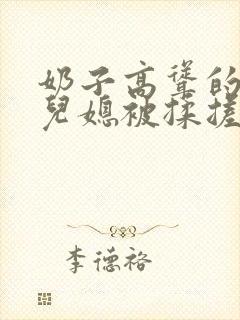 奶子高耸的
兒媳被揉搓
李德裕